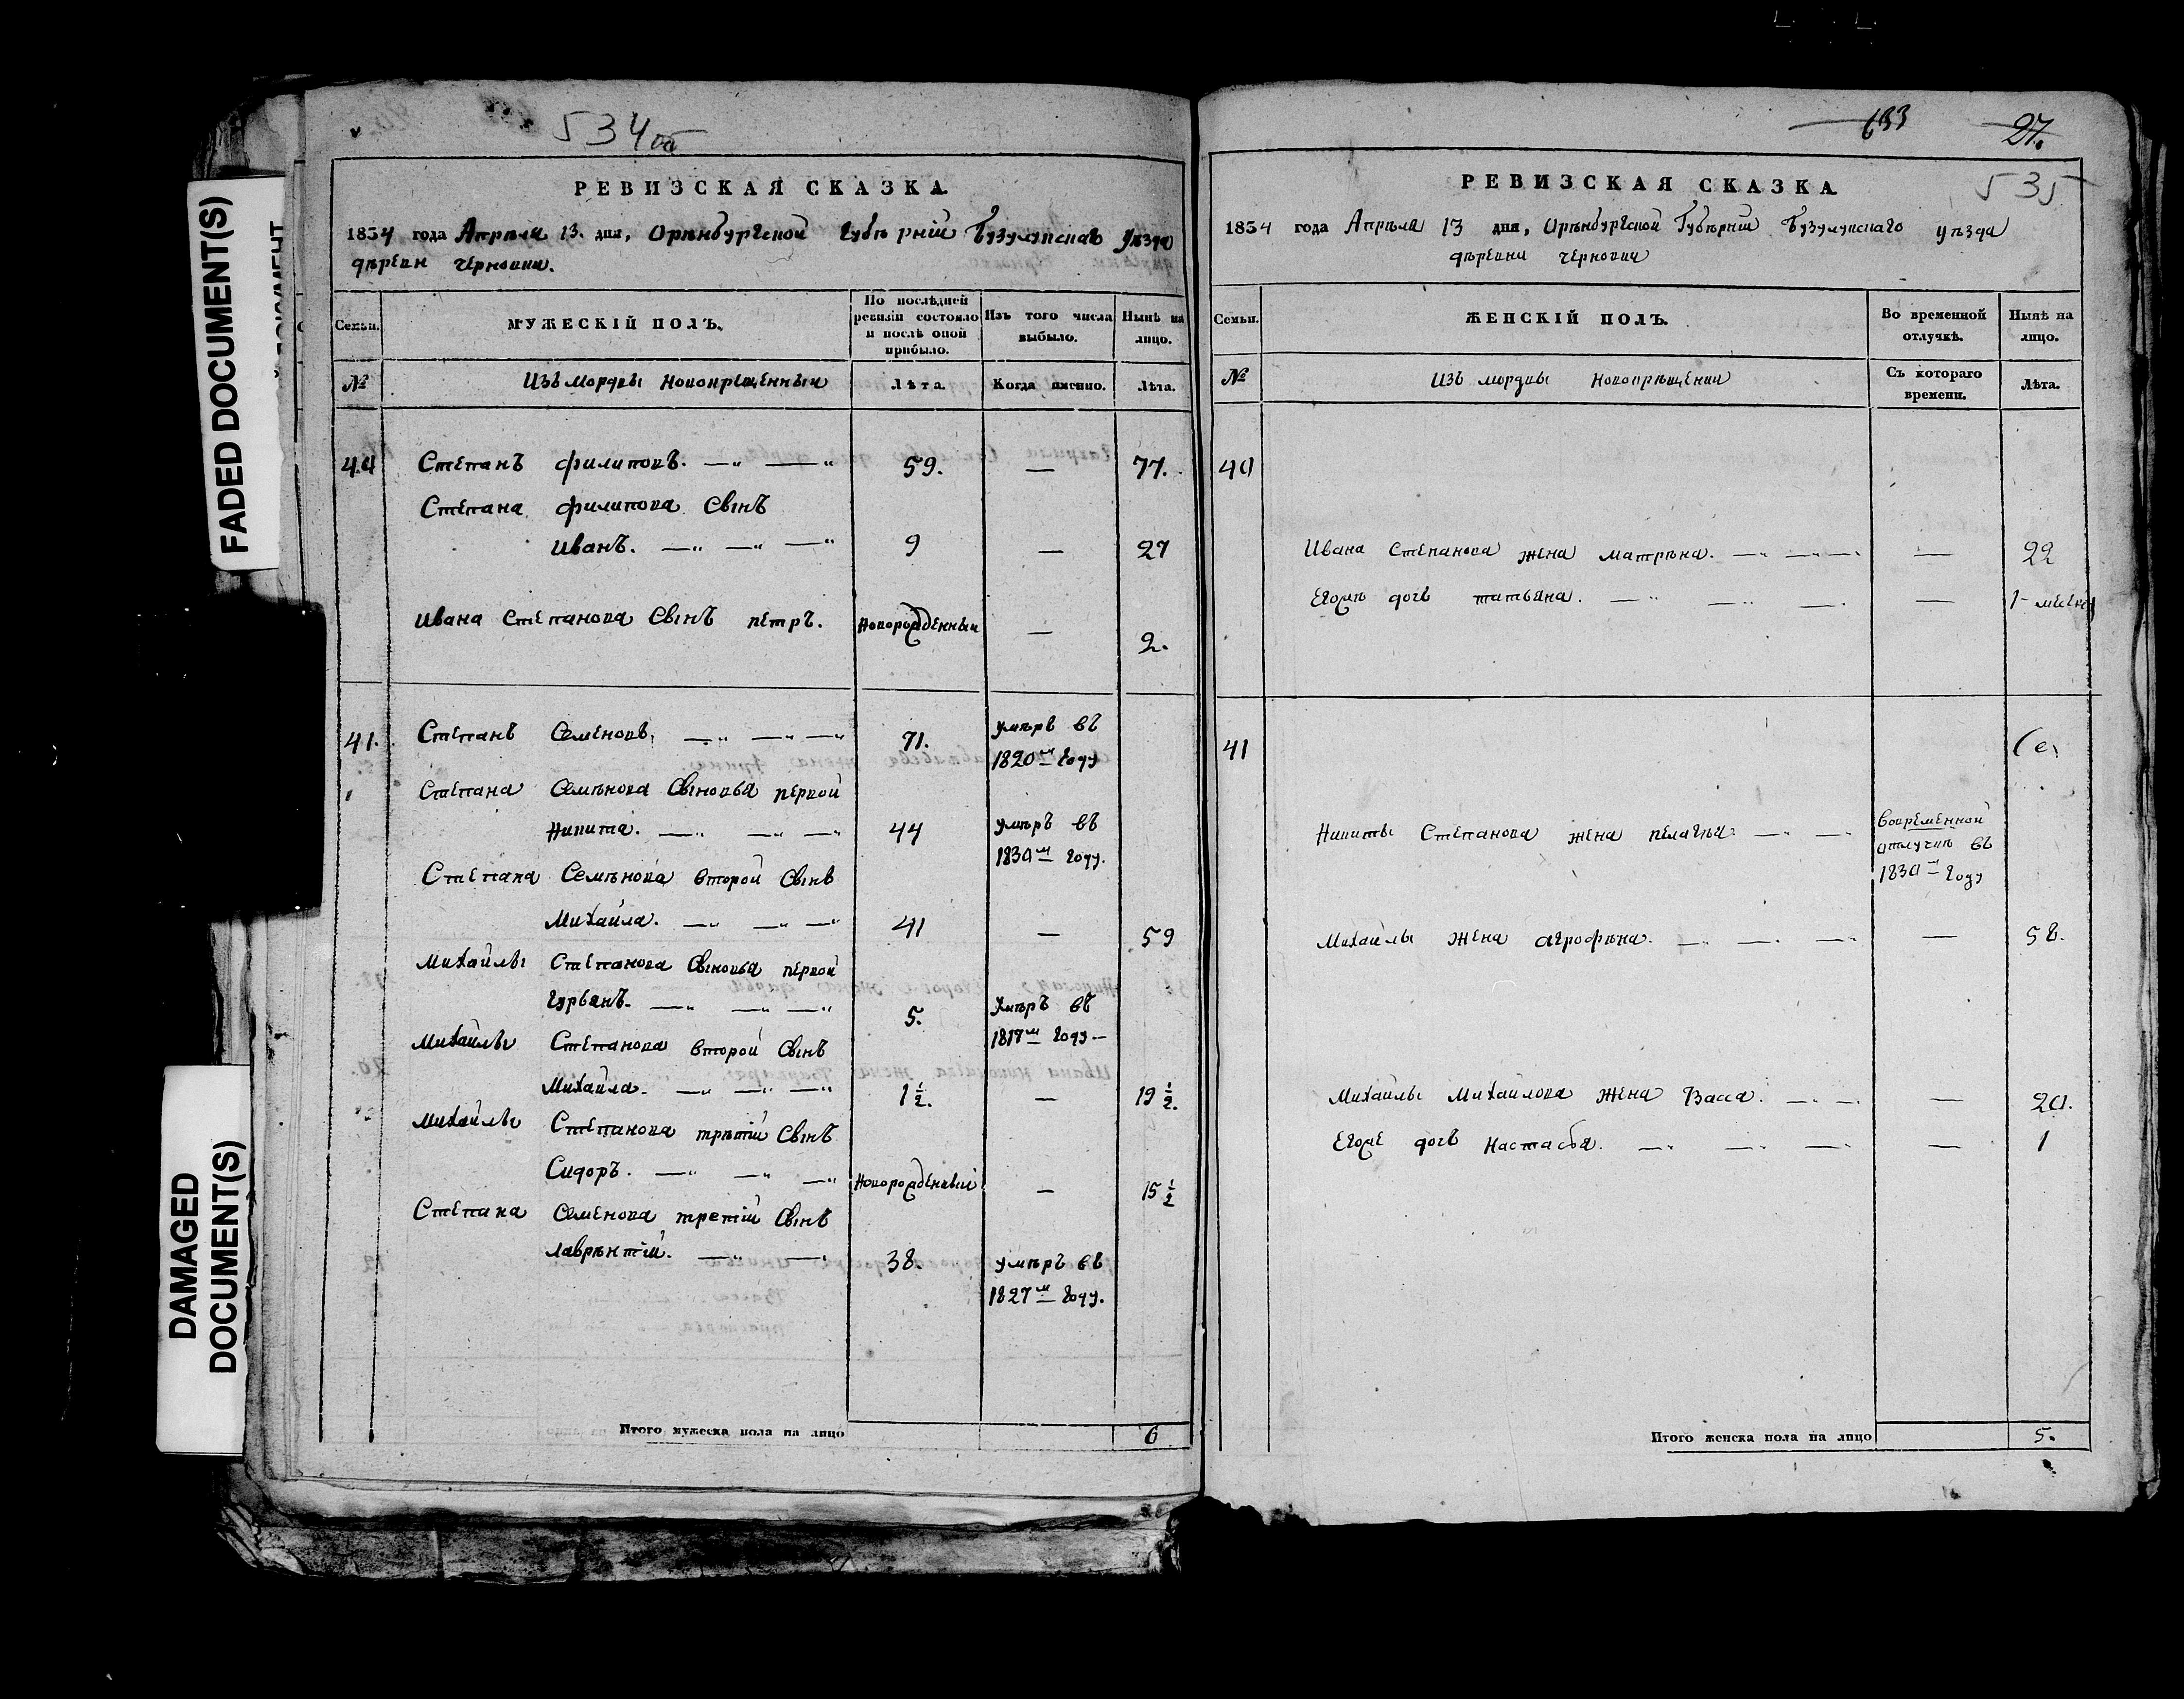 534 об
РЕВИЗСКАЯ СКАЗКА.
1834 года Апрѣля 13. дня, Орѣнбургской губѣрніи Бузулукскаго уѣзда
дѣревни Черновки.
Семьи. МУЖЕСКІЙ ПОЛЪ. По послѣдней ревизіи состояло и послѣ оной прибыло. Изъ того числа выбыло. Нынѣ на лицо.
№ Изъ мордвы новокрещенныи Лѣта. Когда именно. Лѣта.
40 Степанъ филиповъ. 59. — 77.
Степана филипова Сынъ
Иванъ. 9 — 27
Ивана Степанова Сынъ петръ. Новорожденныи — 2.
41. Степанъ Семеновъ 71. Умѣръ въ
1820м году
Степана Семѣнова Сыновья первой
Никита. 44 Умѣръ въ
1830м году.
Степана Семѣнова второй Сынъ
Михайла. 41 — 59
Михайлы Степанова Сыновья первой
Гурьянъ. 5. Умѣръ въ
1817м году
Михайлы Степанова второй Сынъ
Михайла. 1½. — 19½.
Михайлы Степанова трѣтіи Сынъ
Сидоръ. Новорожденный — 15½
Степана Семенова третіи Сынъ
лаврѣнтій. 38. умѣръ въ
1827м году.
Итого мужеска пола на лицо 6
633 27.
535
РЕВИЗСКАЯ СКАЗКА
1834 года Апрѣля 13 дня, Орѣнбургской Губѣрніи Бузулукскаго уѣзда
дѣревни Черновки
Семьи. ЖЕНСКІЙ ПОЛЪ. Во временной отлучкѣ. Нынѣ на лицо.
№ Изъ мордвы новокрѣщении Съ котораго времени. Лѣта.
40
Ивана Степанова жена матрѣна. — 22
Егожѣ дочь татьяна. — 1-месец
41
Никиты Степанова жена пелагѣи. вовременной
отлучкѣ въ
1830м году
Михайлы жена агрофѣна. — 58.
Михайлы Михайлова жена Васа. — 20.
Егоже дочь Настасья. — 1
Итого женска пола на лицо 5.
FADED DOCUMENT(S)
DAMAGED
DOCUMENT(S)